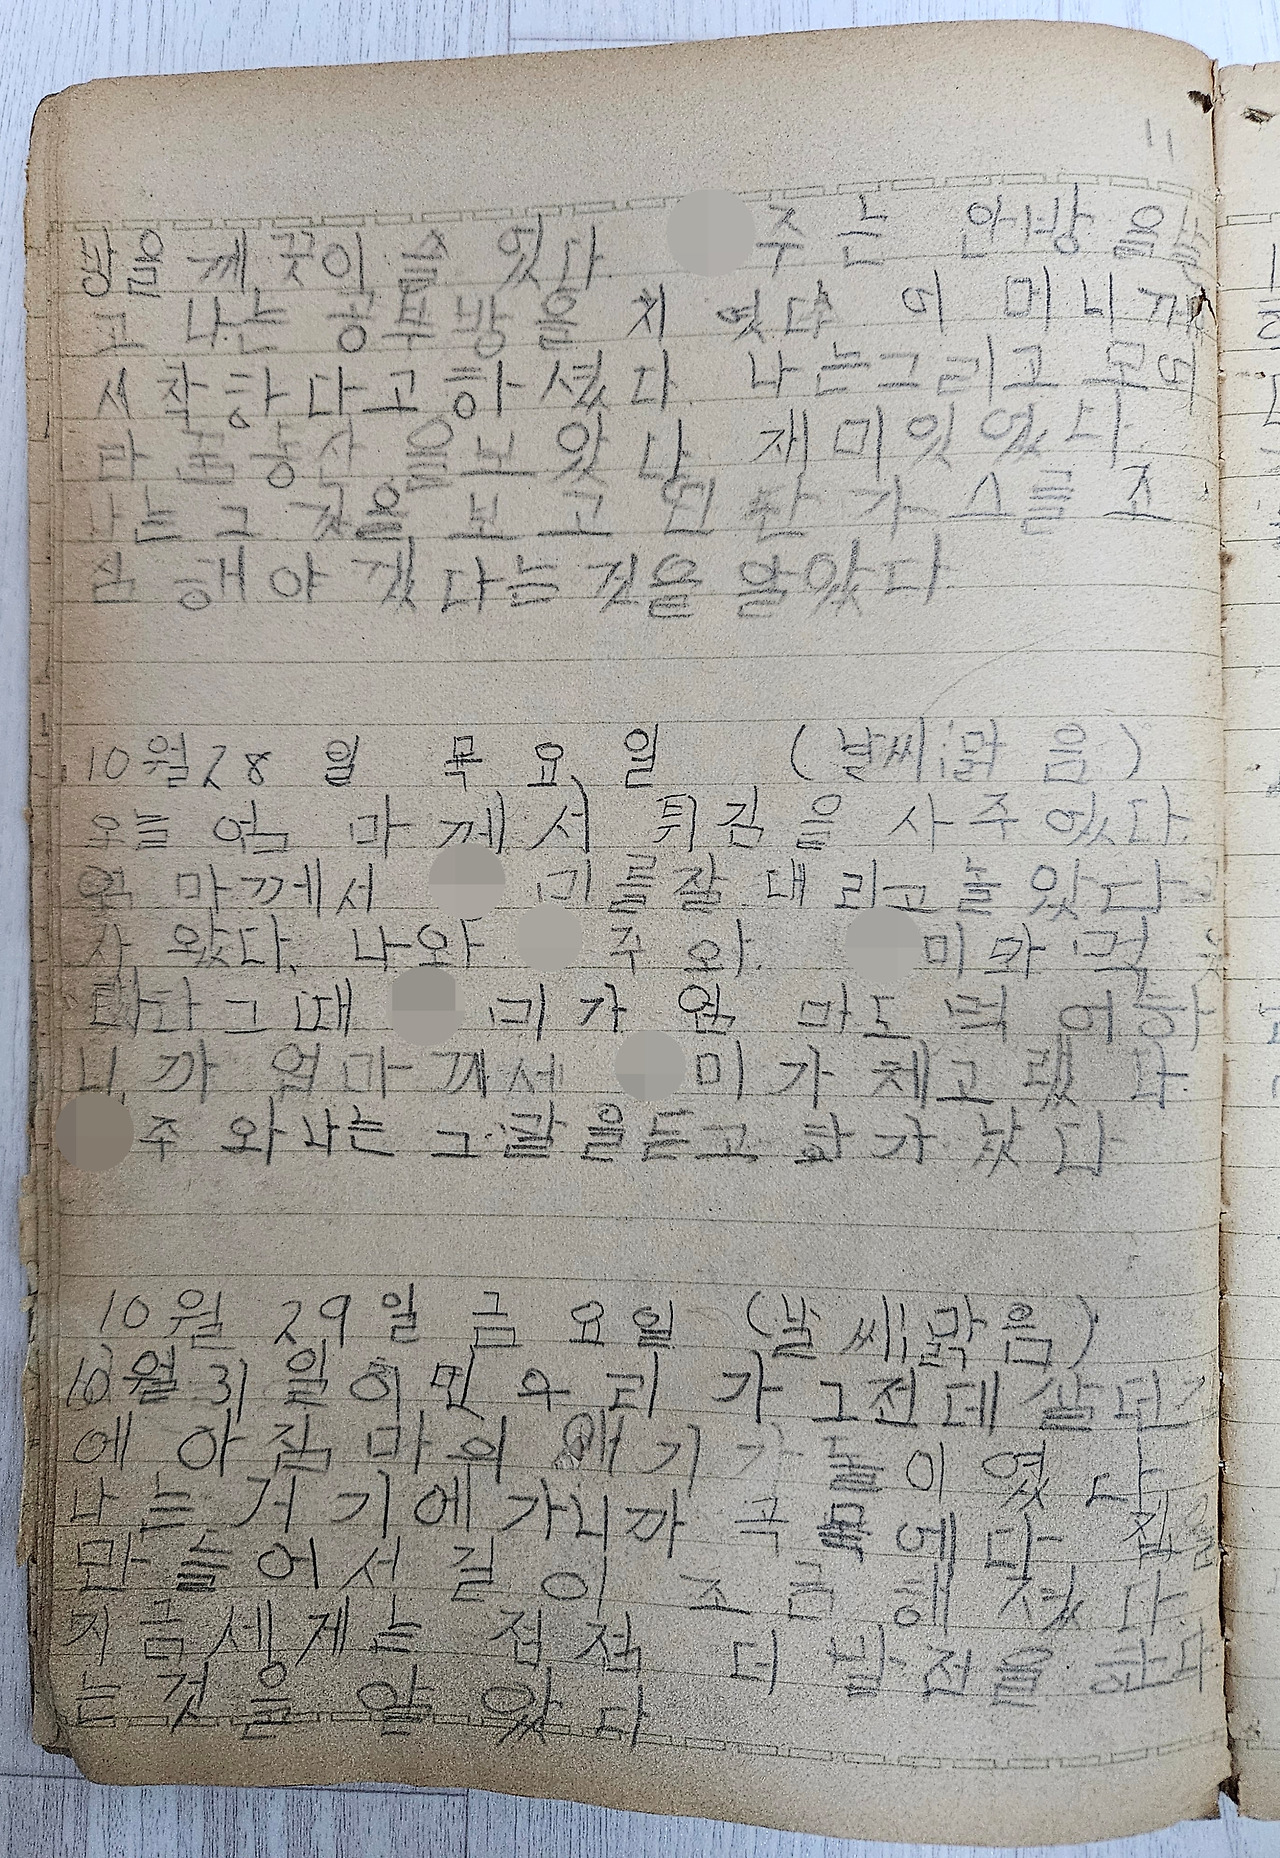 11
방을 께끗이 쓸 었다 주는 안방을
고 나는 공부방을 치 였다 어머니께
서 착하다고 하셨다. 나는그리고
을보았다 재미있었다.
나는 그 것을 보고 가스를 조
심 해야 겠다는 것을 알았다
10월 28 일 목 요 일 (날씨:맑 음)
오늘 엄 마 께서 튀김을 사 주었다.
엄 마께서 미를잘 대리고놀았다
사 왔다. 나와 주 와. 미와 먹
그 때 미 가 엄 마도 어하
니 까 엄마 께서 미 가 체고 랬 다.
주 와나는 그 을듣고 화가 났 다
10 월 29 일 금 요 일 (날 씨:맑음)
10월 31 일 우 리 가 그전데 살던
에 아 줌 마 의 애기 가 돌이 였 다
나는 거 기에 가니까 곡 목 에다 집을
만 들어서 길 이 조 금 해 졌 다.
지 금세 게는 접 점 더 발 전을 하다
는 것 은 알 았 다